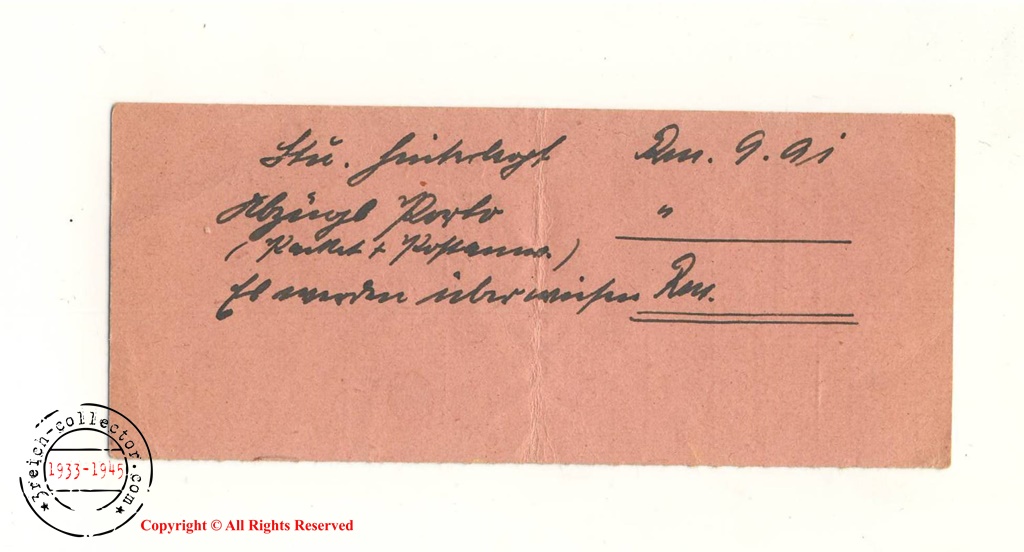 hinterlegt Rm. 9.91
Abzügl. Porto "
(Packet + Postanw.)
Es werden überwiesen Rm.
3reich-collector.com
1933-1945
Copyright © All Rights Reserved